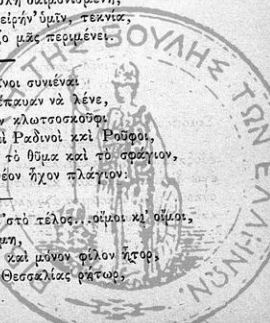 δαιμονισμένη,
εἰρήν' ὑμῖν, τεκνία,
μᾶς περιμένει.
συνιέναι
νὰ λένε,
κλωτσοσκοῦφι
Ραδινοὶ καὶ Ροῦφοι,
τὸ θῦμα καὶ τὸ σφάγιον,
ἦχον πλάγιον.
'στὸ τέλος... οἴμοι κι' οἴμοι,
καὶ μόνον φίλον ἦτορ,
Θεσσαλίας ρήτωρ,
ΤΗΣ ΒΟΥΛΗΣ ΤΩΝ ΕΛΛΗΝΩΝ